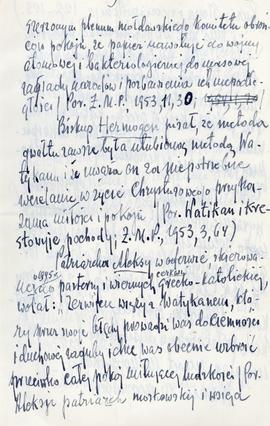 szerzonym plenum mołdawskiego komitetu obroń-
ców pokoju że papież nawołuje do wojny
atomowej i bakteriologicznej do masowej
zagłady narodów i pozbawienia ich niepodle-
głości / Por. Ż.M.P., 1953, 11, 30/.
Biskup Hermogen pisał, że metoda
gwałtu zawsze była ulubioną metodą Wa-
tykanu i że uważa on za niepotrzebne
wcielanie w życie Chrystusowego przyka-
zania miłości i pokoju / Por. Watikan i kre-
stowyje pochody; Ż.M.P., 1953, 3, 64/
Patriarcha Aleksy w odezwie skierowa-
nej do pasterzy i wiernych cerkwi grecko-katolickiej,
wołał: "Zerwijcie więzy z Watykanem, któ-
ry przez swoje błędy prowadzi was do ciemności
i duchowej zaguby i chce was obecnie uzbroić
przeciwko całej pokój miłującej ludzkości / Por.
Aleksij patriarch moskowskij i wsieja